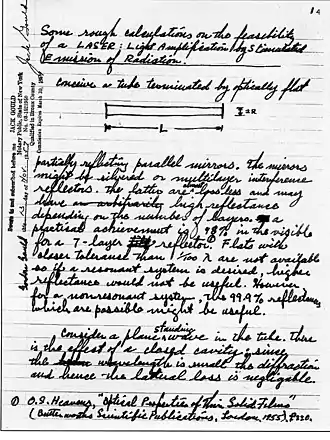 14
Some rough calculations on the feasibility
of a LASER: Light Amplification by Stimulated
Emission of Radiation.
Conceive a tube terminated by optically flat
L
partially reflecting parallel mirrors. The mirrors
might be silvered or multilayer interference
reflectors. The latter are lossless and may
have arbitrarily high reflectance
depending on the number of layers. A
practical achievement is 98% in the visible
for a 7-layer reflector.① Flats with
closer tolerance than 1/100 λ are not available
so if a resonant system is desired, higher
reflectance would not be useful. However
for a nonresonant system, the 99.9% reflectances
which are possible might be useful.
Consider a plane standing wave in the tube. There
is the effect of a closed cavity; since
the wavelength is small the diffraction
and hence the lateral loss is negligable.
① O.S. Heavens, "Optical Properties of Thin Solid Films"
(Butterworths Scientific Publications, London, 1955), p220.
Jack Gould
JACK GOULD
Notary Public, State of New York
Qualified in Bronx County
Commission Expires March 30,
Sworn to and subscribed before me
Gordon Gould